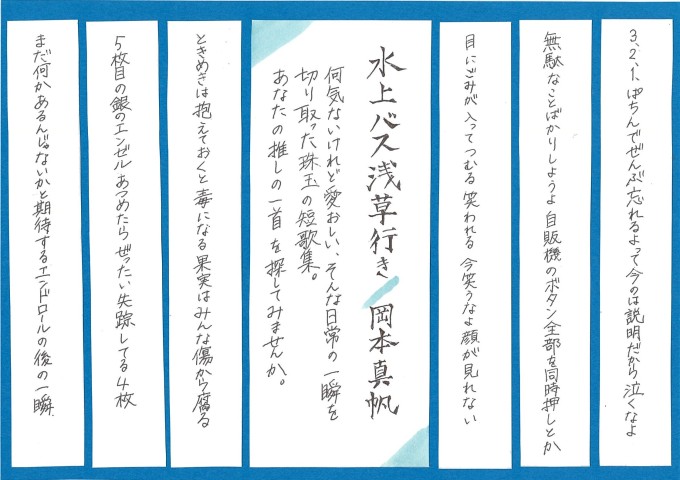 3、2、1、ぱちんでぜんぶ忘れるよって今のは説明だから泣くなよ
無駄なことばかりしようよ自販機のボタン全部を同時押しとか
目にごみが入ってつむる笑われる今笑うなよ顔が見れない
水上バス浅草行き/岡本真帆
何気ないけれど愛おしい、そんな日常の一瞬を
切り取った珠玉の短歌集。
あなたの推しの一首を探してみませんか。
ときめきは抱えておくと毒になる果実はみんな傷から腐る
5枚目の銀のエンゼルあつめたらぜったい失踪してる4枚
まだ何かあるんじゃないかと期待するエンドロールの後の一瞬